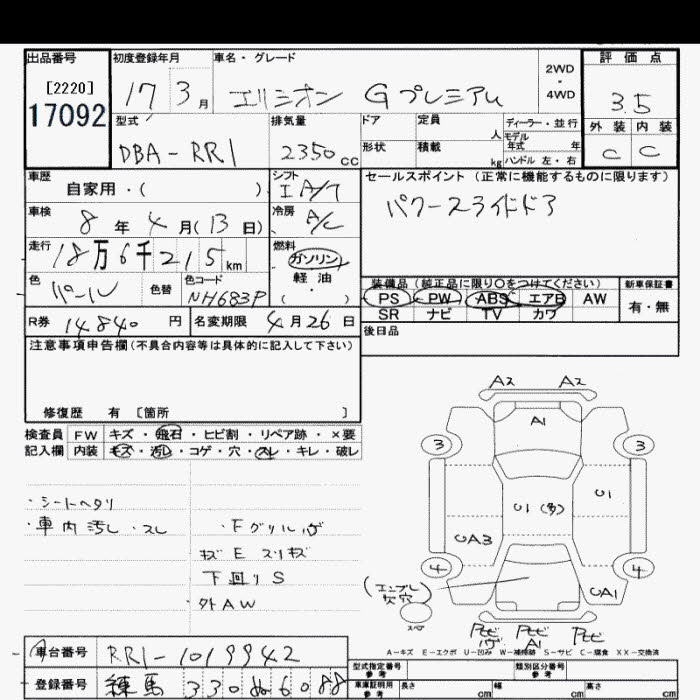 出品番号 初度登録年月 車名・グレード 評価点
[2220] 17 3月 エリシオン Gプレミアム 2WD・4WD 3.5
17092 型式 排気量 ドア 定員 人 ディーラー・並行 外装 内装
DBA-RR1 2350cc 形状 積載 kg モデル年式 年 ハンドル 左・右 C C
車歴 自家用・( ) シフト IA/T セールスポイント (正常に機能するものに限ります)
車検 8年4月(13日) 冷房 A/C パワースライドドア
走行 18万6千215km 燃料 ガソリン 軽油・( )
色 パール 色替 色コード NH683P 装備品 (純正品に限り〇をつけてください) 新車保証書
PS PW ABS エアB AW 有・無
R券 14840円 名変期限 4月26日 SR ナビ TV カワ
後日品
注意事項申告欄(不具合内容等は具体的に記入して下さい)
修復歴 有 [箇所 ]
検査員 FW キズ・飛石・ヒビ割・リペア跡・×要
記入欄 内装 キズ・汚レ・コゲ・穴・スレ・キレ・破レ
・シートヘタリ
・車内汚レ・スレ ・Fグリル
キズ E スリキズ
下回りS
外AW
A2 A2
A1
3 3
U1 (多) U1
UA3
4 4
UA1
(エンブレ欠穴)
スペア
A1
A-キズ E-エクボ U-凹み W-補修跡 S-サビ C-腐食 XX-交換済
車台番号 RR1-1019942 型式指定番号 参考 類別区分番号 参考
登録番号 練馬 330 ぬ 6088 車庫証明用 参考 長さ cm 幅 cm 高さ cm